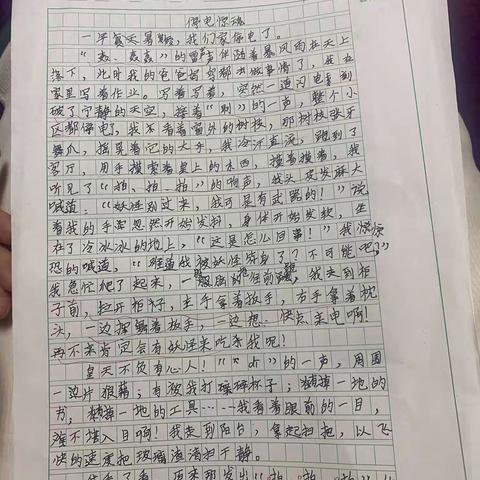 停电惊魂
一年夏天暑期，我们家停电了。
“轰、轰轰”的雷声伴随着暴风雨在天上
落下，此时我的爸爸妈妈都去做事情了，我在
家里写着作业。写着写着，突然一道闪电击到
破了宁静的天空，接着“刷”的一声，整个小
区都停电了，我不看着窗外的树枝，那树枝张牙
舞爪，摇晃着它的大手，我冷汗直流，跑到了
客厅，用手摸索着桌上的东西，摸着摸着，我
听见了“拍、拍、拍”的响声，我头皮发麻大
喊道：“妖怪别过来，我可是有武器的！”说
着我的手忽然开始发抖，身体开始发软，坐
在了冷冰冰的地上，“这是怎么回事！”我惊
恐的喊道，“难道我被妖怪附身了？不可能吧？”
我急忙爬了起来，一我夹到柜
子前，拉开柜子，左手拿着扳手，右手拿着枕
头，一边挥舞着扳手，一边想：快点来电啊！
再不来肯定会有妖怪来吃了我呢！
皇天不负有心人！“”的一声，周围
一边片狼藉；有被我打碎杯子；一地的
书，一地的工具……我看着眼前的一目，
难不堪入目啊！我走到阳台，拿起扫把，以飞
快的速度把玻璃渣清扫干净。
原来那发出“拍、拍、拍”